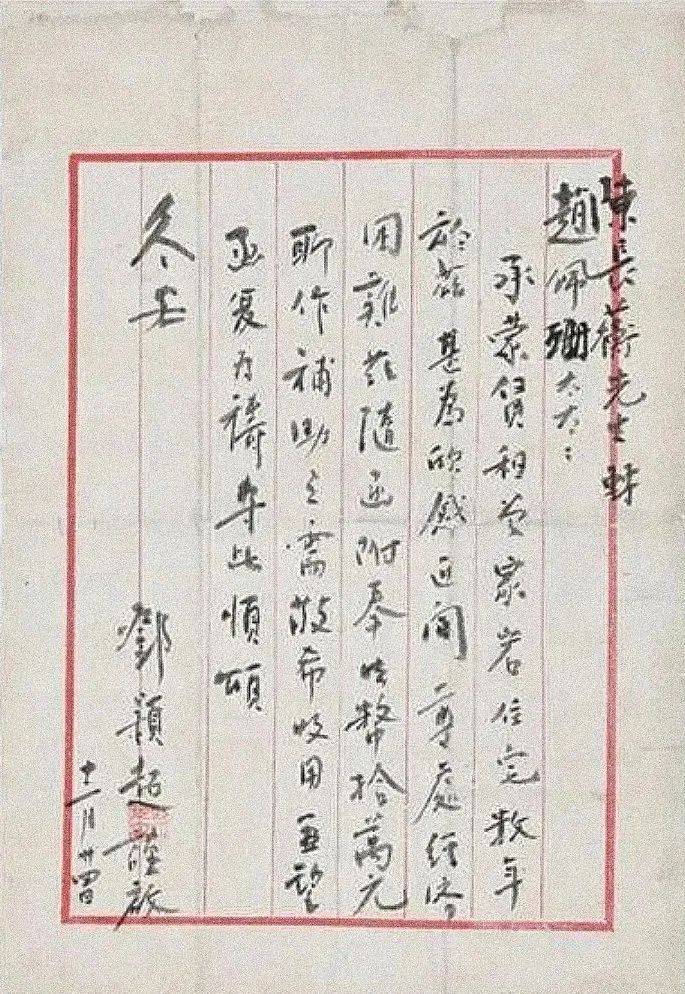 陳長蘅先生 財
趙佩珊太太：
承蒙賃租曾家岩住宅数年
於茲甚為欣感近聞尊處經濟
困難茲隨函附奉法幣拾萬元
聊作補助之需敬希收用並望
函复为禱專此順頌
冬安
鄧穎超謹啟
十一月廿四日